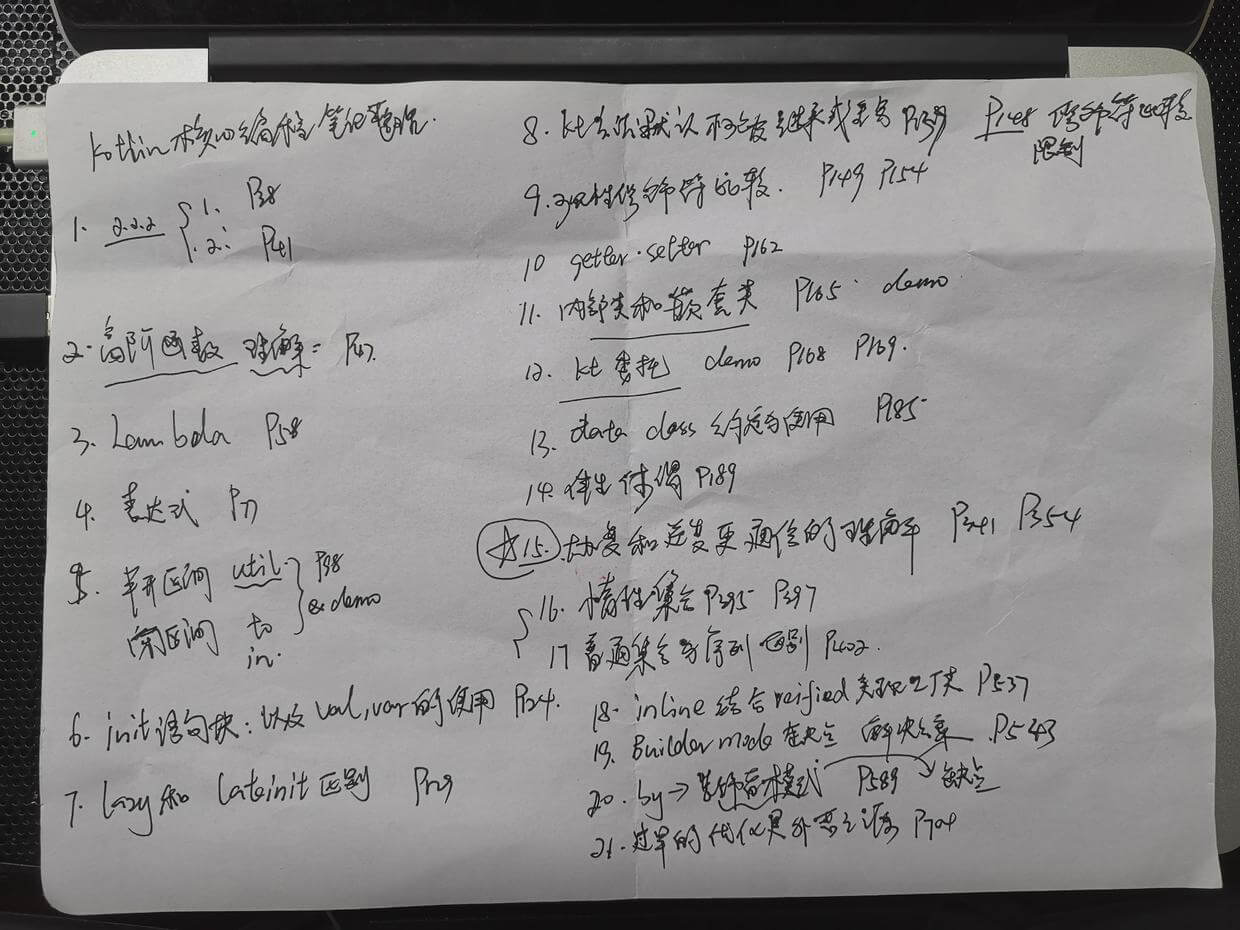 Kotlin 核心编程 笔记
1. 2.2.2 { 1. P38
2. P41
2. 高阶函数 理解: P47
3. Lambda P58
4. 表达式 P77
5. 半开区间 util
闭区间 to
in. } P98 & demo
6. init语句块: 以及 val, var的使用 P124.
7. lazy和 lateinit区别 P129
8. kt 默认不 继承或 P139 P148 修饰符
限制
9. 修饰符 P149 P154
10 getter.setter P162
11. 内部类和嵌套类 P165. demo
12. kt 委托 demo P168 P169.
13. data class 约定与使用 P185
14. 伴生 P189
☆15. 协变和逆变 的理解 P341 P354
{ 16. 惰性集合 P395 P397
17 普通集合与序列 区别 P402.
18. inline 结合 reified 实现工厂类 P537
19. Builder mode 缺点 解决方案. P543
20. by → 装饰者模式 P589 缺点
21. 过早的优化是 之源 P704